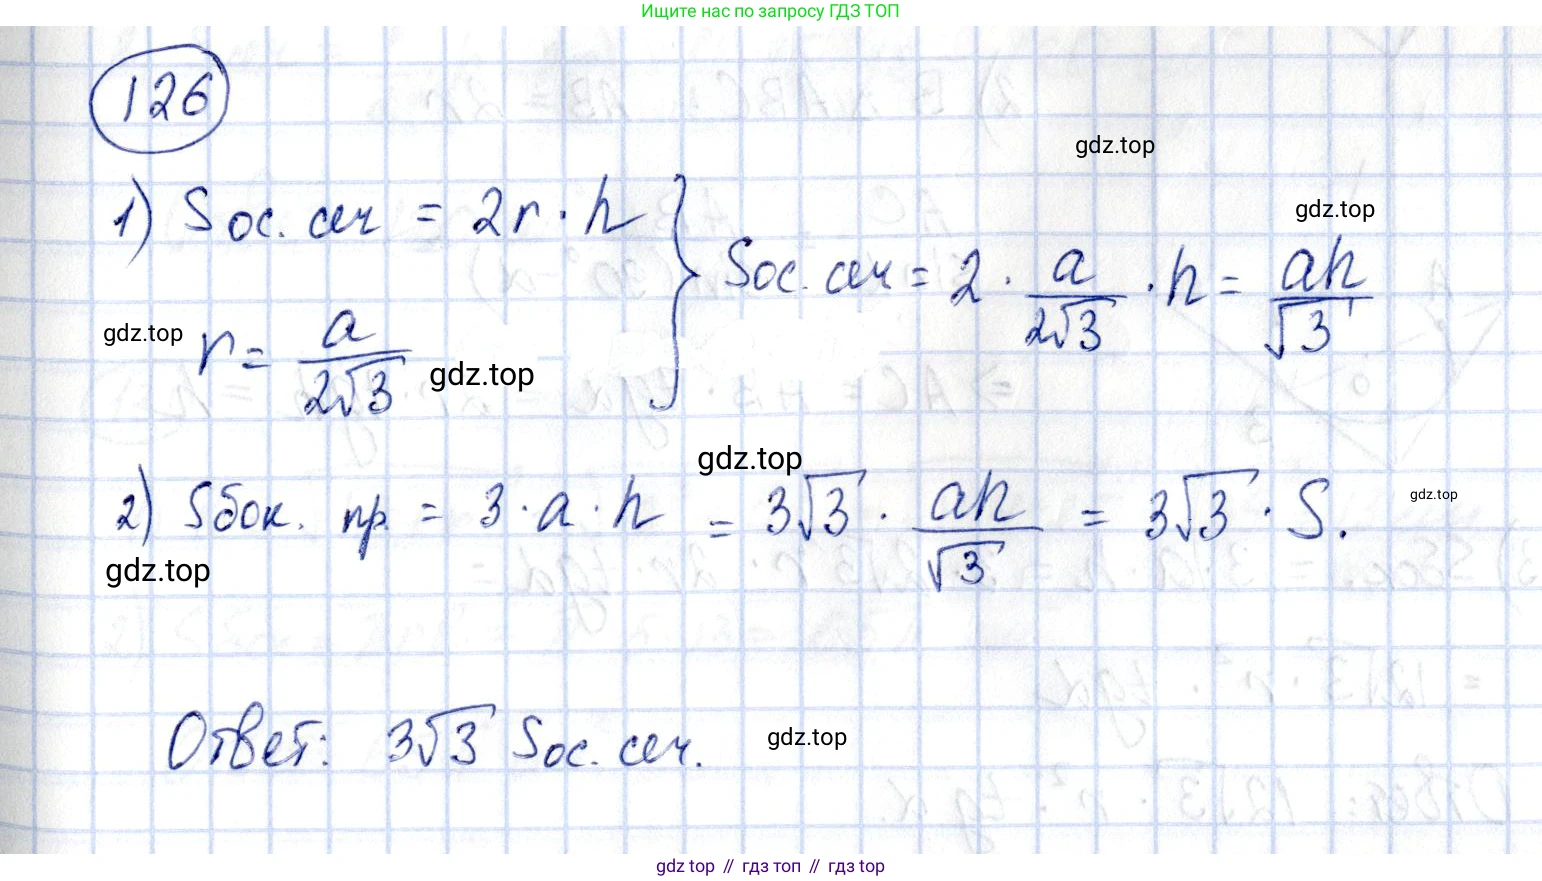 Ищите нас по запросу ГДЗ ТОП
126
gdz.top
1) Sос. сеч = 2r · h } Sос. сеч = 2 · a/(2√3) · h = ah/√3
gdz.top
gdz.top
r = a/(2√3)
gdz.top
gdz.top
2) Sбок. пр. = 3 · a · h = 3√3 · ah/√3 = 3√3 · S.
gdz.top
gdz.top
Ответ: 3√3 Sос. сеч.
gdz.top
gdz top // гдз топ // гдз top